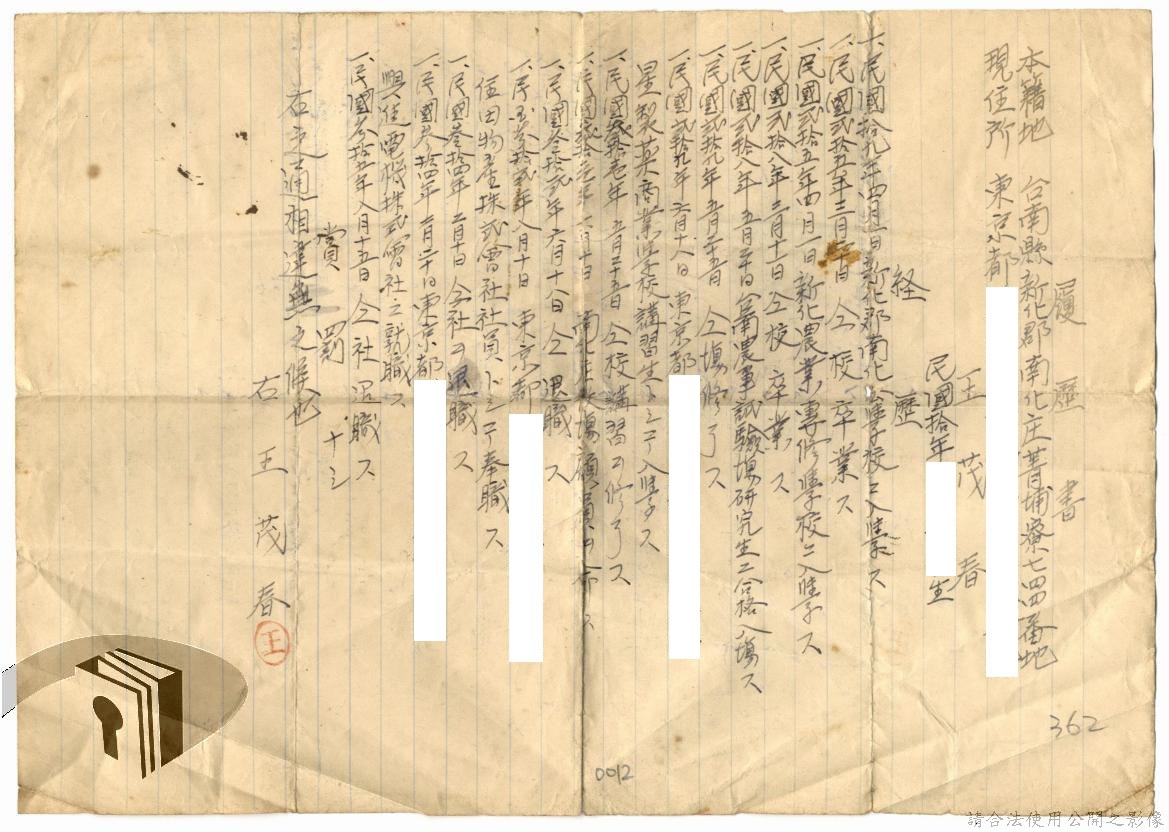 履歷書
本籍地 台南縣新化郡南化庄菁埔寮七四四番地
現住所 東京都
王茂春
民國拾年 生
経歷
一、民國拾九年四月一日新化郡南化公學校ニ入學ス
一、民國貳拾五年三月三十日仝校卒業ス
一、民國貳拾五年四月一日新化農業專修學校ニ入學ス
一、民國貳拾八年三月十一日仝校卒業ス
一、民國貳拾八年五月三十日台南農事試驗場研究生ニ合格入場ス
一、民國貳拾九年五月二十五日仝場修了ス
一、民國貳拾九年六月十八日東京都
星製藥商業學校講習生トシテ入學ス
一、民國 年五月二十五日仝校講習ヲ修了ス
一、民國 年 月十日南化庄役場雇員ヲ命ス
一、民國叁拾貳年六月十八日仝退職ス
一、民國叁拾貳年八月十日東京都
住田物產株式會社社員トシテ奉職ス
一、民國叁拾四年二月十日仝社ヲ退職ス
一、民國叁拾四年二月二十日東京都
興佳電機株式會社之就職ス
一、民國叁拾五年八月十五日仝社退職ス
賞罰ナシ
右之通相違無之候也
右王茂春
王
362
0012
請合法使用公開之影像